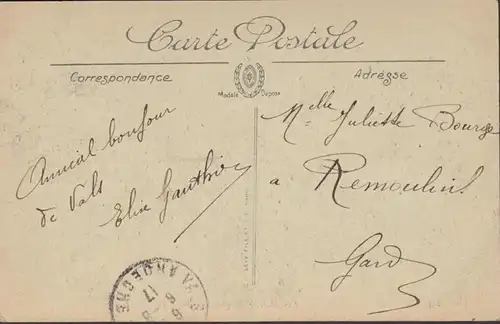 Carte Postale
Correspondance
Adresse
Modèle Déposé
Amical bonjour
de Vals
Elise Gauthier
Melle Juliette Bourge
a Remoulins
Gard
VALS
ARDECHE
17